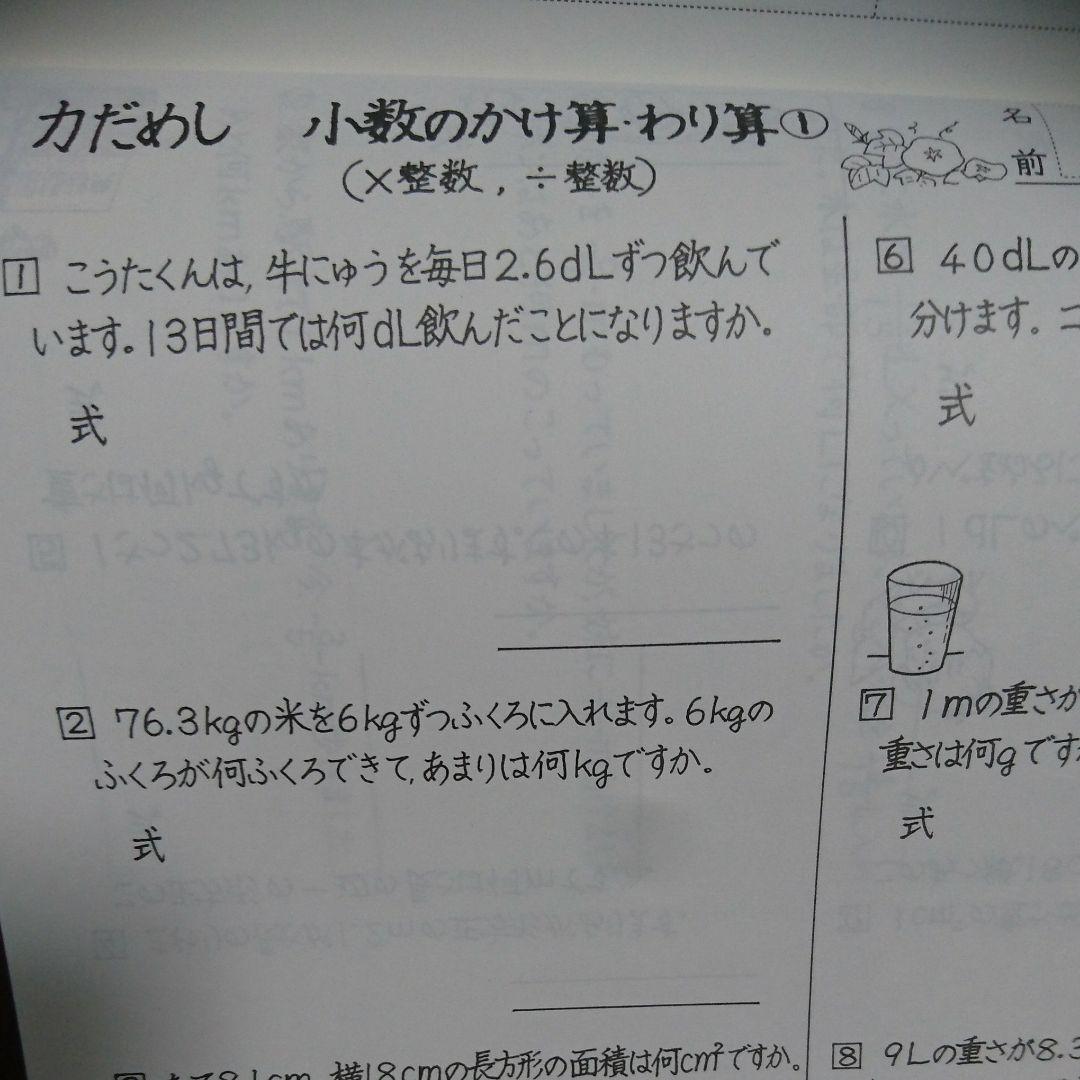 力だめし 小数のかけ算・わり算①
(×整数, ÷整数)
名前
1 こうたくんは, 牛にゅうを毎日2.6dLずつ飲んで
います。13日間では何dL飲んだことになりますか。
式
2 76.3kgの米を6kgずつふくろに入れます。6kgの
ふくろが何ふくろできて, あまりは何kgですか。
式
横18cmの長方形の面積は何cm²ですか。
6 40dLの
分けます。コ
式
7 1mの重さが
重さは何gですか
式
8 9Lの重さが8.3